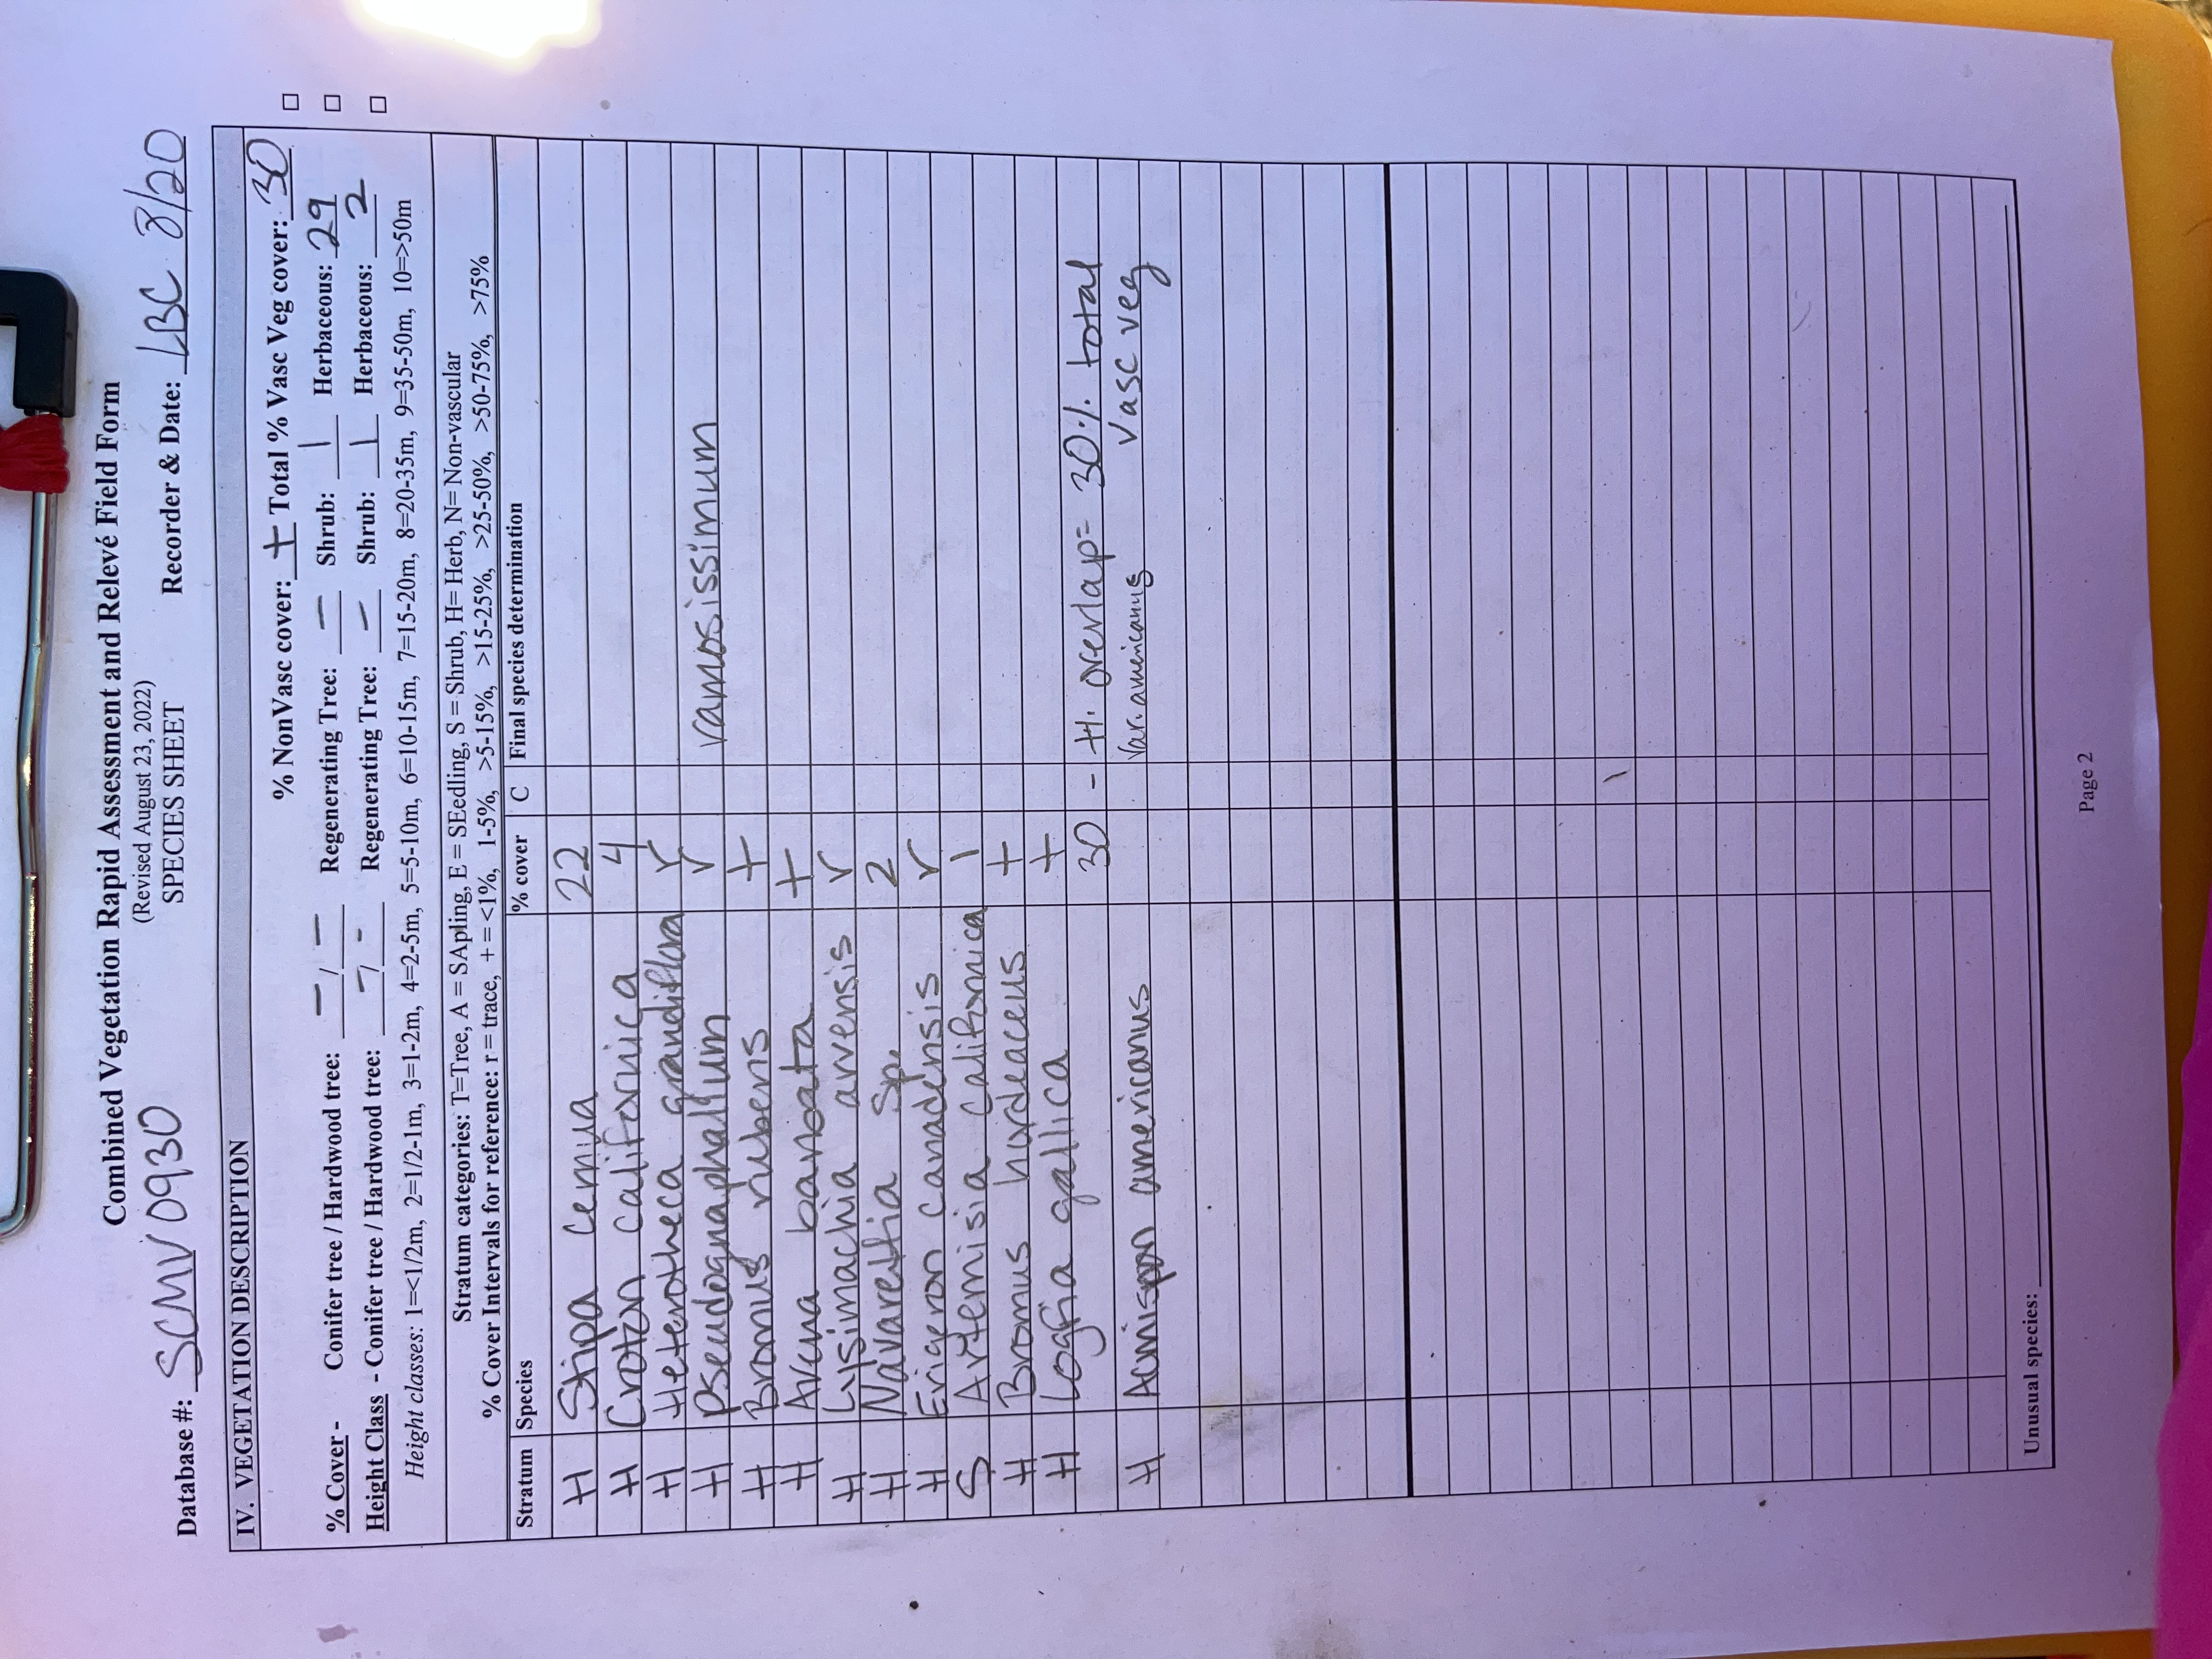 Combined Vegetation Rapid Assessment and Relevé Field Form
(Revised August 23, 2022)
SPECIES SHEET
Database #: SCMV0930 Recorder & Date: LBC 8/20
IV. VEGETATION DESCRIPTION
% NonVasc cover: + Total % Vasc Veg cover: 30 □
% Cover - Conifer tree / Hardwood tree: – / – Regenerating Tree: – Shrub: 1 Herbaceous: 29 □
Height Class - Conifer tree / Hardwood tree: – / – Regenerating Tree: – Shrub: 1 Herbaceous: 2 □
Height classes: 1=<1/2m, 2=1/2-1m, 3=1-2m, 4=2-5m, 5=5-10m, 6=10-15m, 7=15-20m, 8=20-35m, 9=35-50m, 10=>50m
Stratum categories: T=Tree, A = SApling, E = SEedling, S = Shrub, H= Herb, N= Non-vascular
% Cover Intervals for reference: r = trace, + = <1%, 1-5%, >5-15%, >15-25%, >25-50%, >50-75%, >75%
Stratum Species % cover C Final species determination
H Stipa cernua 22
H Croton californica 4
H Heterotheca grandiflora r
H Pseudognaphalium r ramosissimum
H Bromus rubens +
H Avena barbata +
H Lysimachia arvensis r
H Navaretia sp. 2
H Erigeron canadensis r
S Artemisia californica 1
H Bromus hordeaceus +
H Logfia gallica +
30 - H. overlap = 30% total
vasc veg
H Acmispon americanus var. americanus
Unusual species:
Page 2